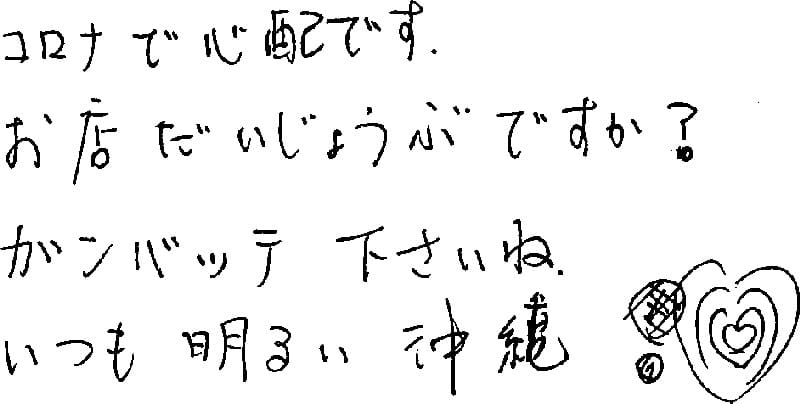 コロナで心配です.
お店だいじょうぶですか?
ガンバッテ 下さいね.
いつも 明るい 沖縄